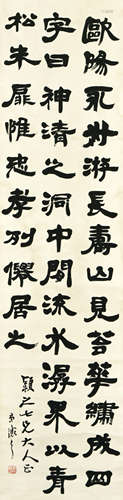 歐陽永叔游長壽山見苔華繡成四
字曰神清之洞中閒流水潺界以青
松朱扉惟忠孝列僊居之
七兄大人正
弟